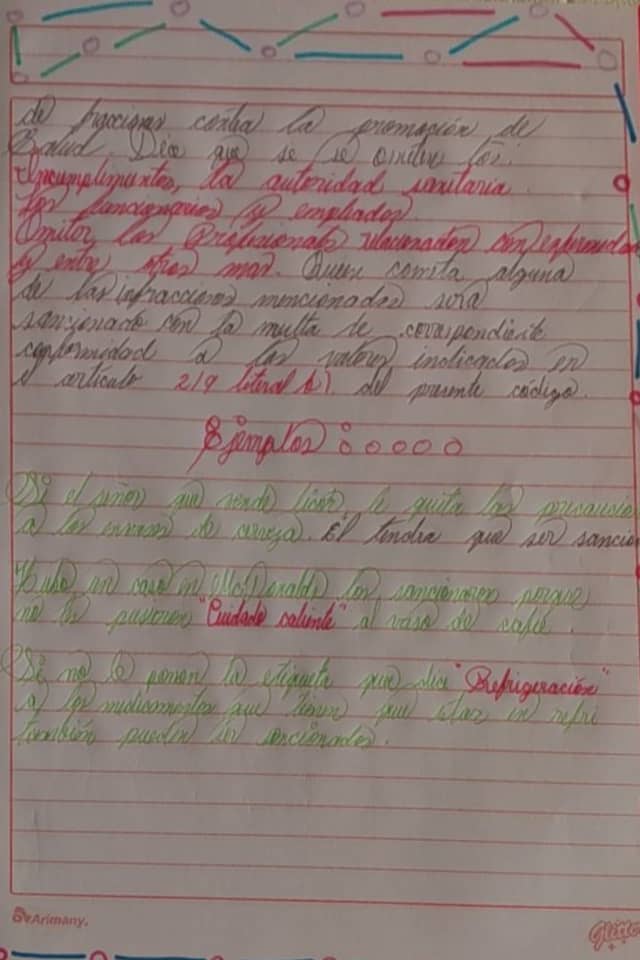 de fracciones contra la promoción de
Salud. Dice que se se omiten los:
Incumplimientos, la autoridad sanitaria.
Los funcionarios y empleados.
Omitor, los Profesionales relacionados con enfermedad
y entre otros mas. Quien cometa alguna
de las infracciones mencionadas será
sancionado con la multa le correspondiente
conformidad a los valores indicados en
el artículo 219 literal b). del presente código.
Ejemplos
Si el señor que vende licor le quita las
a los envases de cerveza. El tendra que ser sancio
Hubo un caso en McDonalds los sancionaron porque
no les pusieron "Cuidado caliente" al vaso de café.
Si no le ponen la etiqueta que dice "Refrigeración"
a los medicamentos que tienen que estar en refri
también pueden ser sancionados.
Arimany.
Glitter